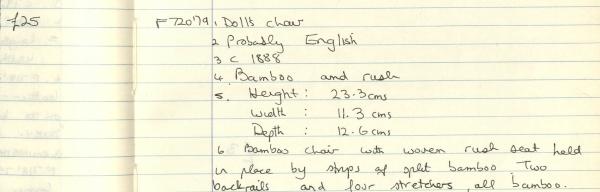 £25 F720'79 1 Dolls chair
2 Probably English
3 c 1888
4 Bamboo and rush
5. Height : 23.3 cms
Width : 11.3 cms
Depth : 12.6 cms
6 Bamboo chair with woven rush seat held
in place by strips of split bamboo Two
backrails and four stretchers, all bamboo.